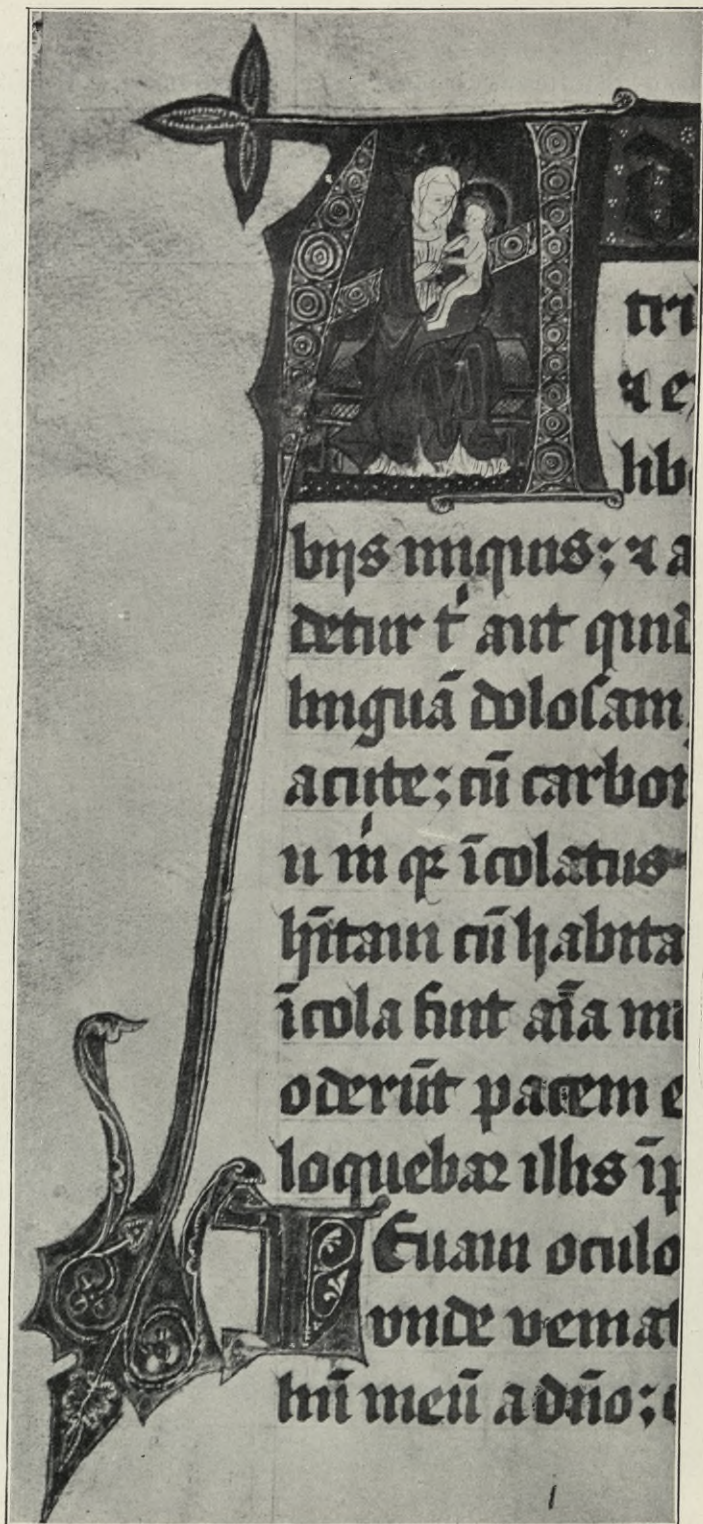 A d
tri
⁊ e
lib
biis iniquis; ⁊ a
detur tⁱ aut quid
linguā dolosam
acute; cū carbon
u mⁱ qꝛ īcolatus
hītam cū habita
īcola fuit aīa m
oderūt pacem e
loquebar illis īp
Leuaui oculo
vnde veniat
liū meū a dn̄o; c